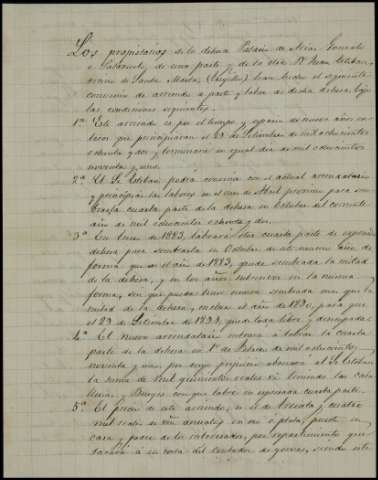 Los propietarios de la dehesa Palacio de Arias Gonzalo
de una parte y de la otra Dn. Juan Esteban,
vecino de Santa Marta, han hecho el siguiente
convenio de arriendo a pasto y labor de dicha dehesa bajo
las condiciones siguientes.
1ª Este arriendo es por el tiempo y espacio de nueve años
que principiarán el 29 de Setiembre de mil ochocientos
ochenta y dos y terminará en igual dia de mil ochocientos
noventa y uno.
2ª El Sr. Esteban podrá convenir con el actual arrendatario
y principiar las labores en el mes de Abril proximo para
cuarta parte de la dehesa en Octubre del corriente
año de mil ochocientos ochenta y dos.
3ª En Enero de 1883, labrará otra cuarta parte de
dehesa para sembrarla en Octubre de este mismo año de
forma que en el año de 1883, quede sembrada la mitad
de la dehesa, y en los años subsesivos en la misma
forma, sin que pueda tener nunca sembrada mas que la
mitad de la dehesa, en el año de 1890, para que
el 29 de Setiembre de quede toda libre y desocupada.
4ª El nuevo arrendatario entrará a labrar la cuarta
parte de la dehesa en 1º de Enero de mil ochocientos
noventa y uno, por cuyo perjuicio abonará al Sr. Esteban
la suma de mil quinientos reales vn.
con que labre su espresada cuarta parte.
5ª El precio de este arriendo, es el de treinta y cuatro
mil reales de vn. anuales, en oro o plata, puestos en
casa y poder de los interesados, por repartimiento que
siendo este